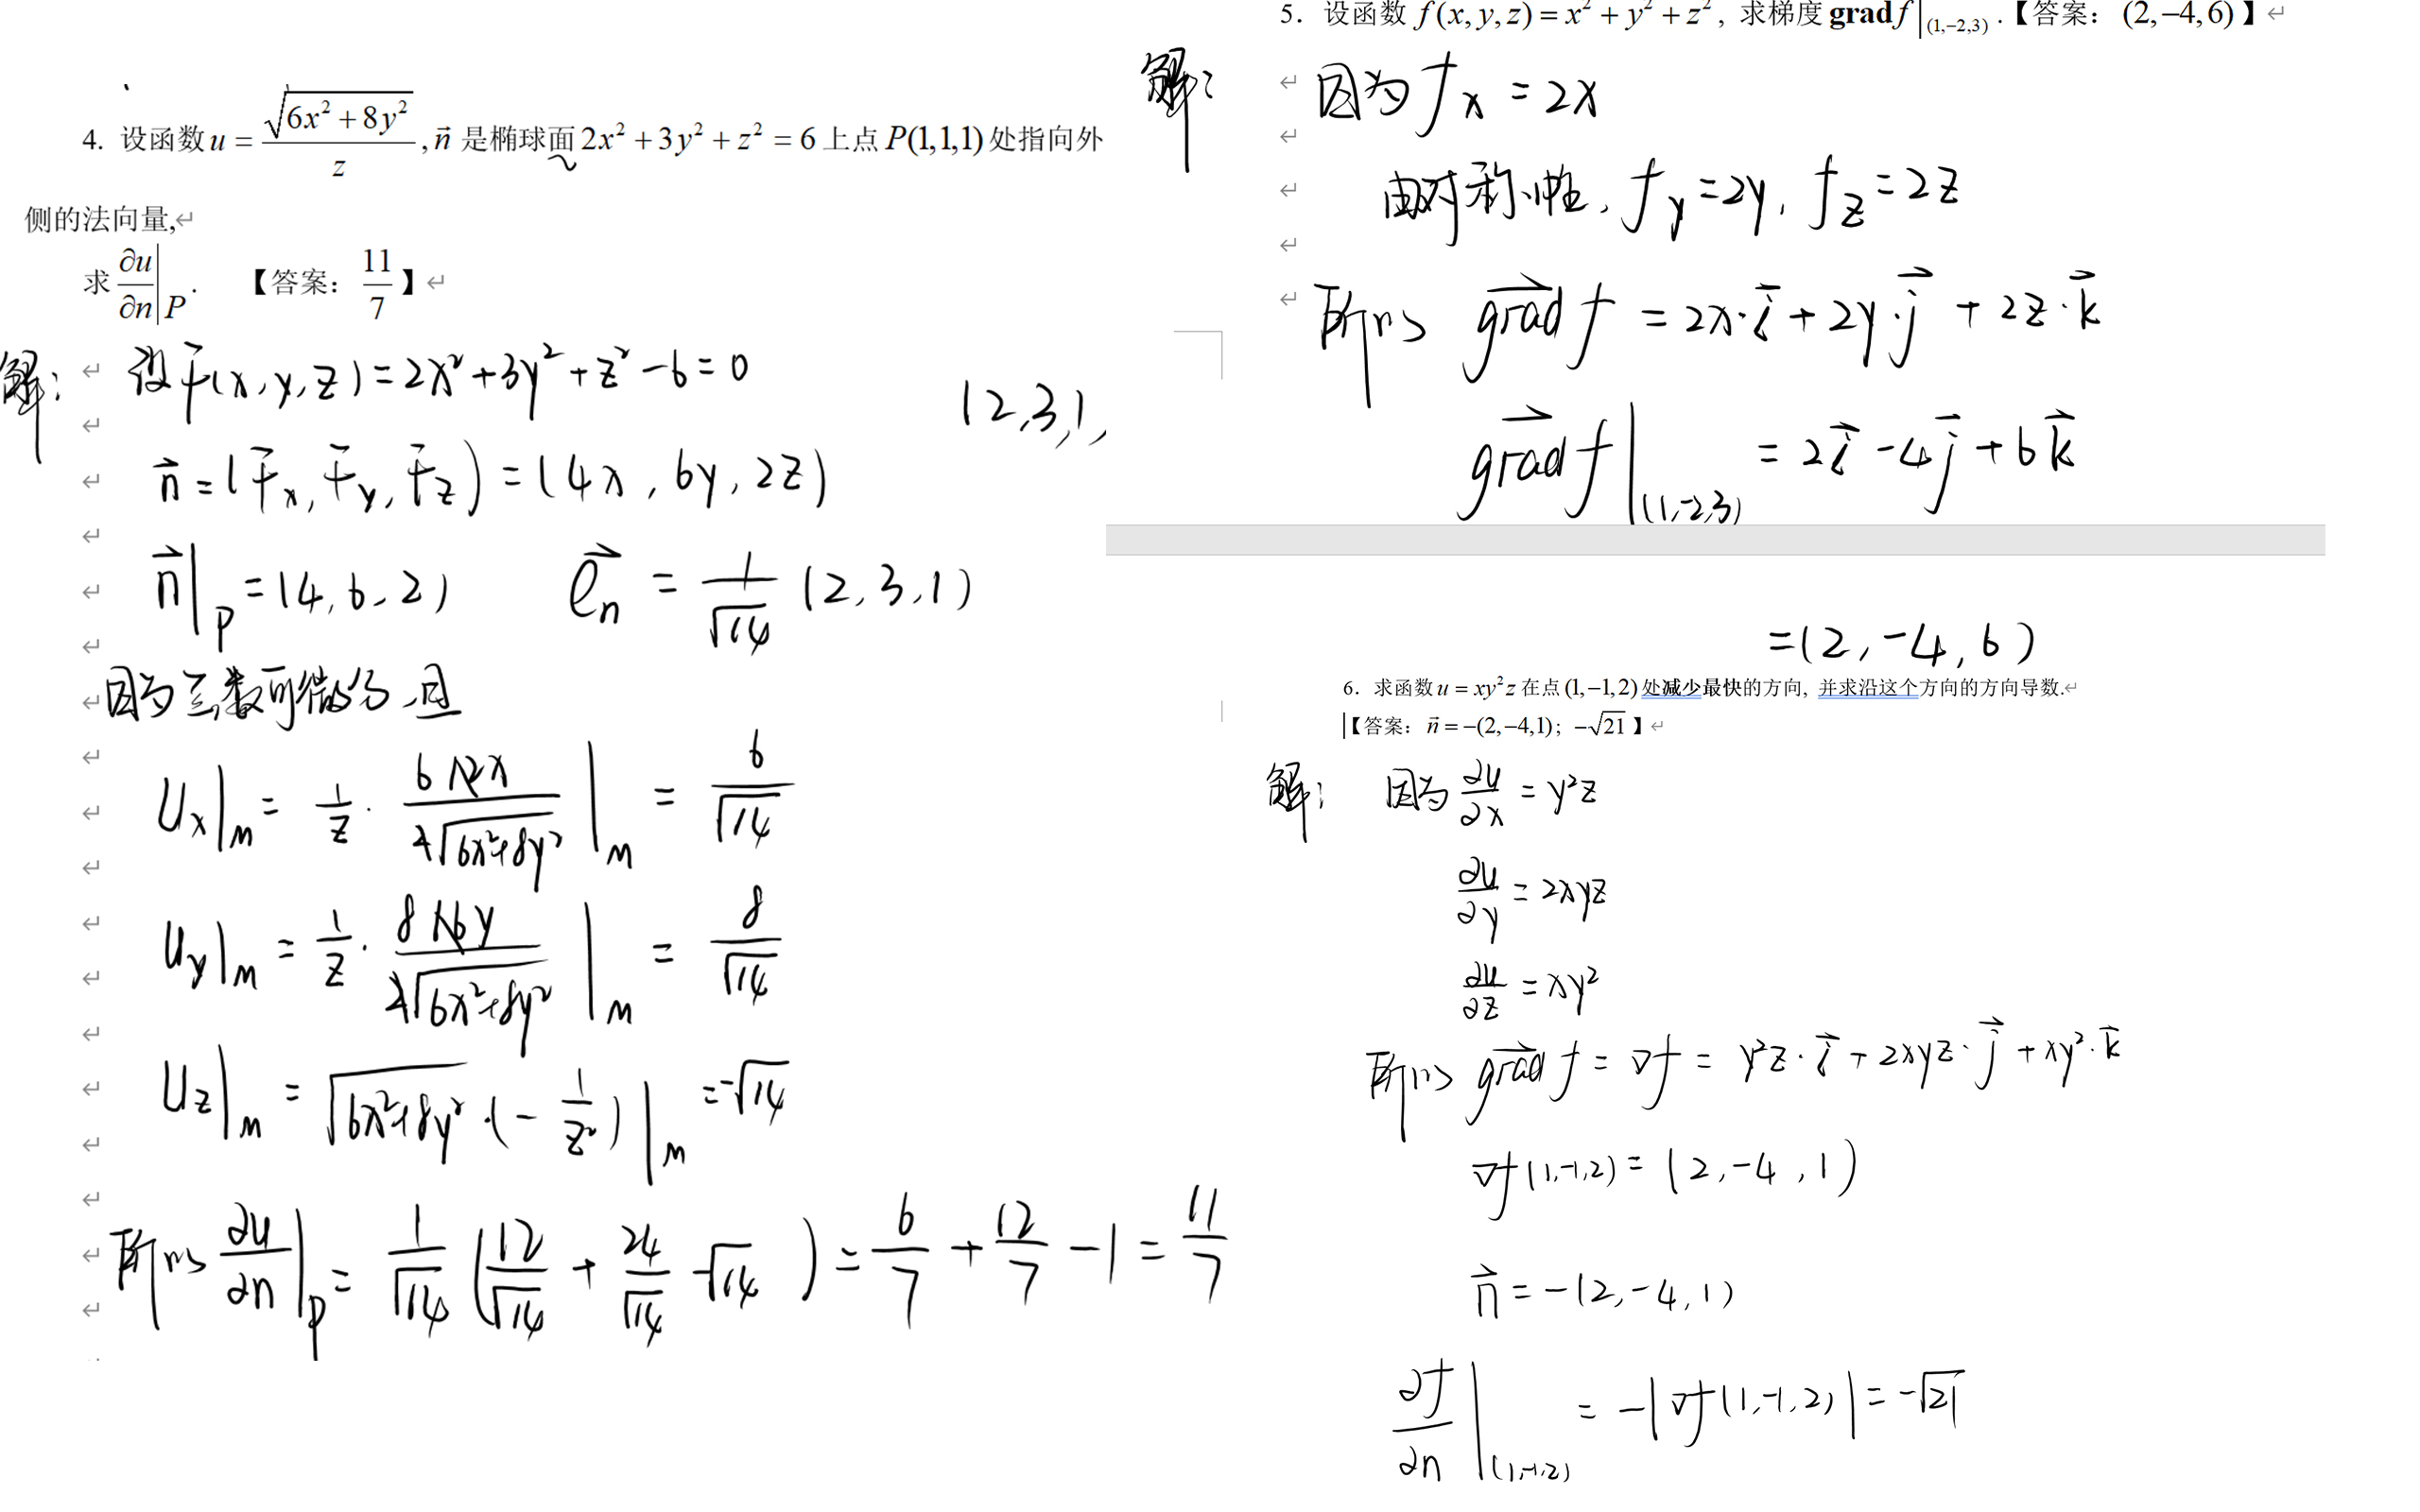 4. 设函数 u = √(6x² + 8y²) / z , n⃗ 是椭球面 2x² + 3y² + z² = 6 上点 P(1,1,1) 处指向外
侧的法向量,
求 ∂u/∂n |P . 【答案： 11/7 】
解： 设 F(x, y, z) = 2x² + 3y² + z² - 6 = 0
(2,3,1,
n⃗ = (Fx, Fy, Fz) = (4x, 6y, 2z)
n⃗|P = (4, 6, 2) e⃗n = 1/√14 (2, 3, 1)
数可微分,且
Ux|M = 1/z · 6x / √(6x²+8y²) |M = 6/√14
Uy|M = 1/z · 8y / √(6x²+8y²) |M = 8/√14
Uz|M = √(6x²+8y²) · (- 1/z²) |M = -√14
所以 ∂u/∂n |P = 1/√14 (12/√14 + 24/√14 - √14) = 6/7 + 12/7 - 1 = 11/7
5. 设函数 f(x, y, z) = x² + y² + z², 求梯度 grad f |(1,-2,3) .【答案： (2,-4,6)】
解： 因为 fx = 2x
由对称性, fy = 2y, fz = 2z
所以 grad f = 2x·i⃗ + 2y·j⃗ + 2z·k⃗
grad f |(1,-2,3) = 2i⃗ - 4j⃗ + 6k⃗
= (2, -4, 6)
6. 求函数 u = xy²z 在点 (1,-1,2) 处减少最快的方向, 并求沿这个方向的方向导数.
【答案： n⃗ = -(2,-4,1); -√21 】
解： 因为 ∂u/∂x = y²z
∂u/∂y = 2xyz
∂u/∂z = xy²
所以 grad f = ∇f = y²z·i⃗ + 2xyz·j⃗ + xy²·k⃗
∇f(1,-1,2) = (2, -4, 1)
n⃗ = -(2, -4, 1)
∂f/∂n |(1,-1,2) = -|∇f(1,-1,2)| = -√21